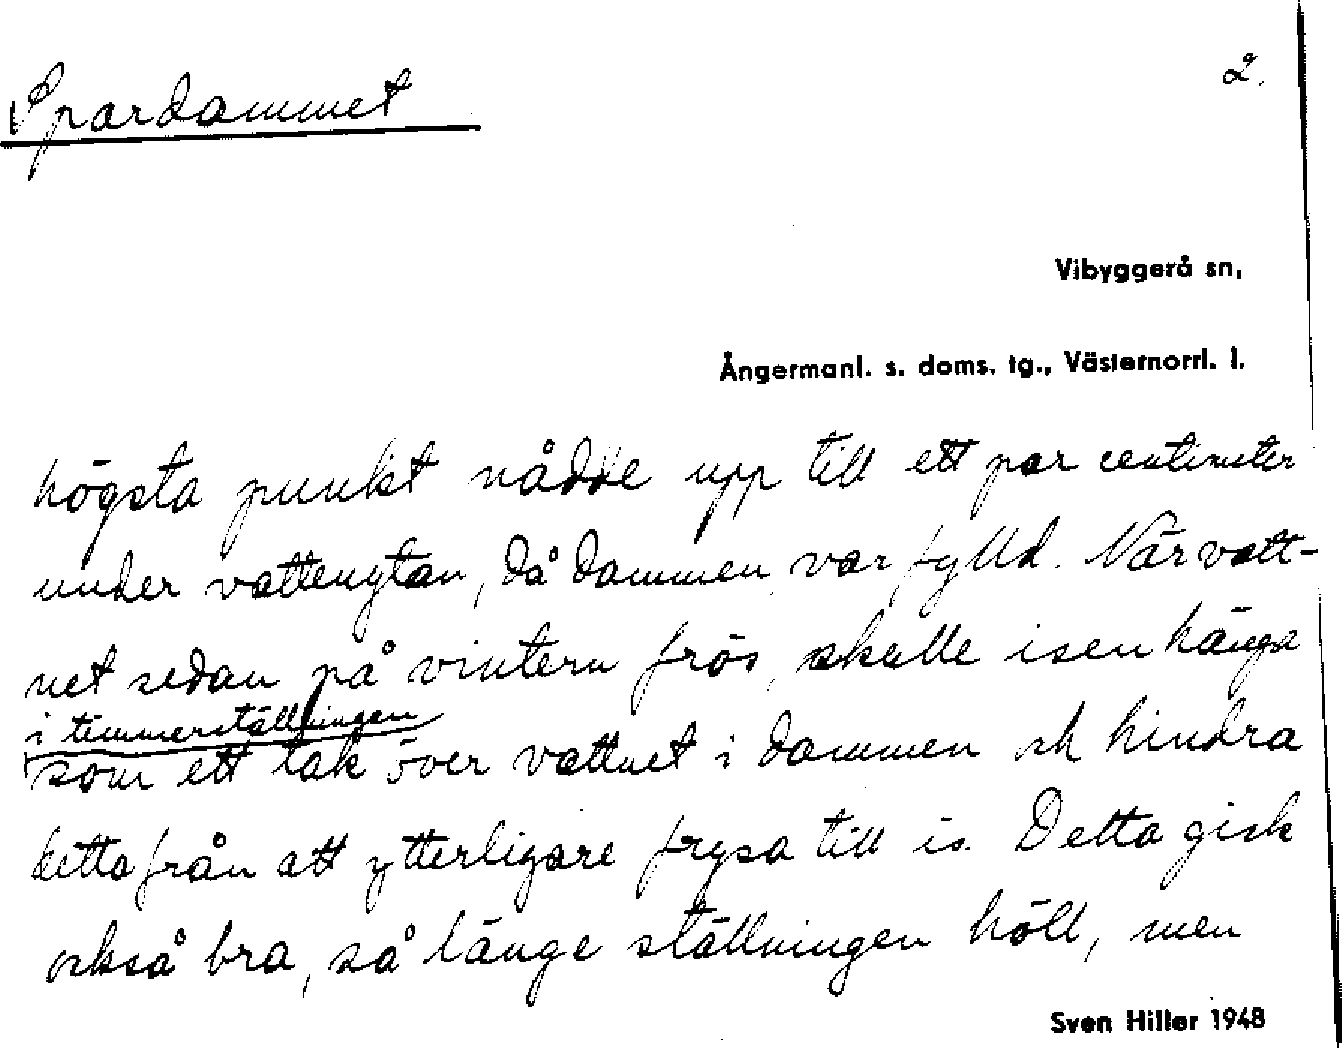 Spardammet
2.
Vibyggerå sn,
Ångermanl. s. doms. tg., Västernorrl. l.
högsta punkt nådde upp till ett par centimeter
under vattenytan, då dammen var fylld. När vatt-
net sedan på vintern frös, skulle isen hänga
i timmerställningen
som ett tak över vattnet i dammen och hindra
detta från att ytterligare frysa till is. Detta gick
också bra, så länge ställningen höll, men
Sven Hiller 1948